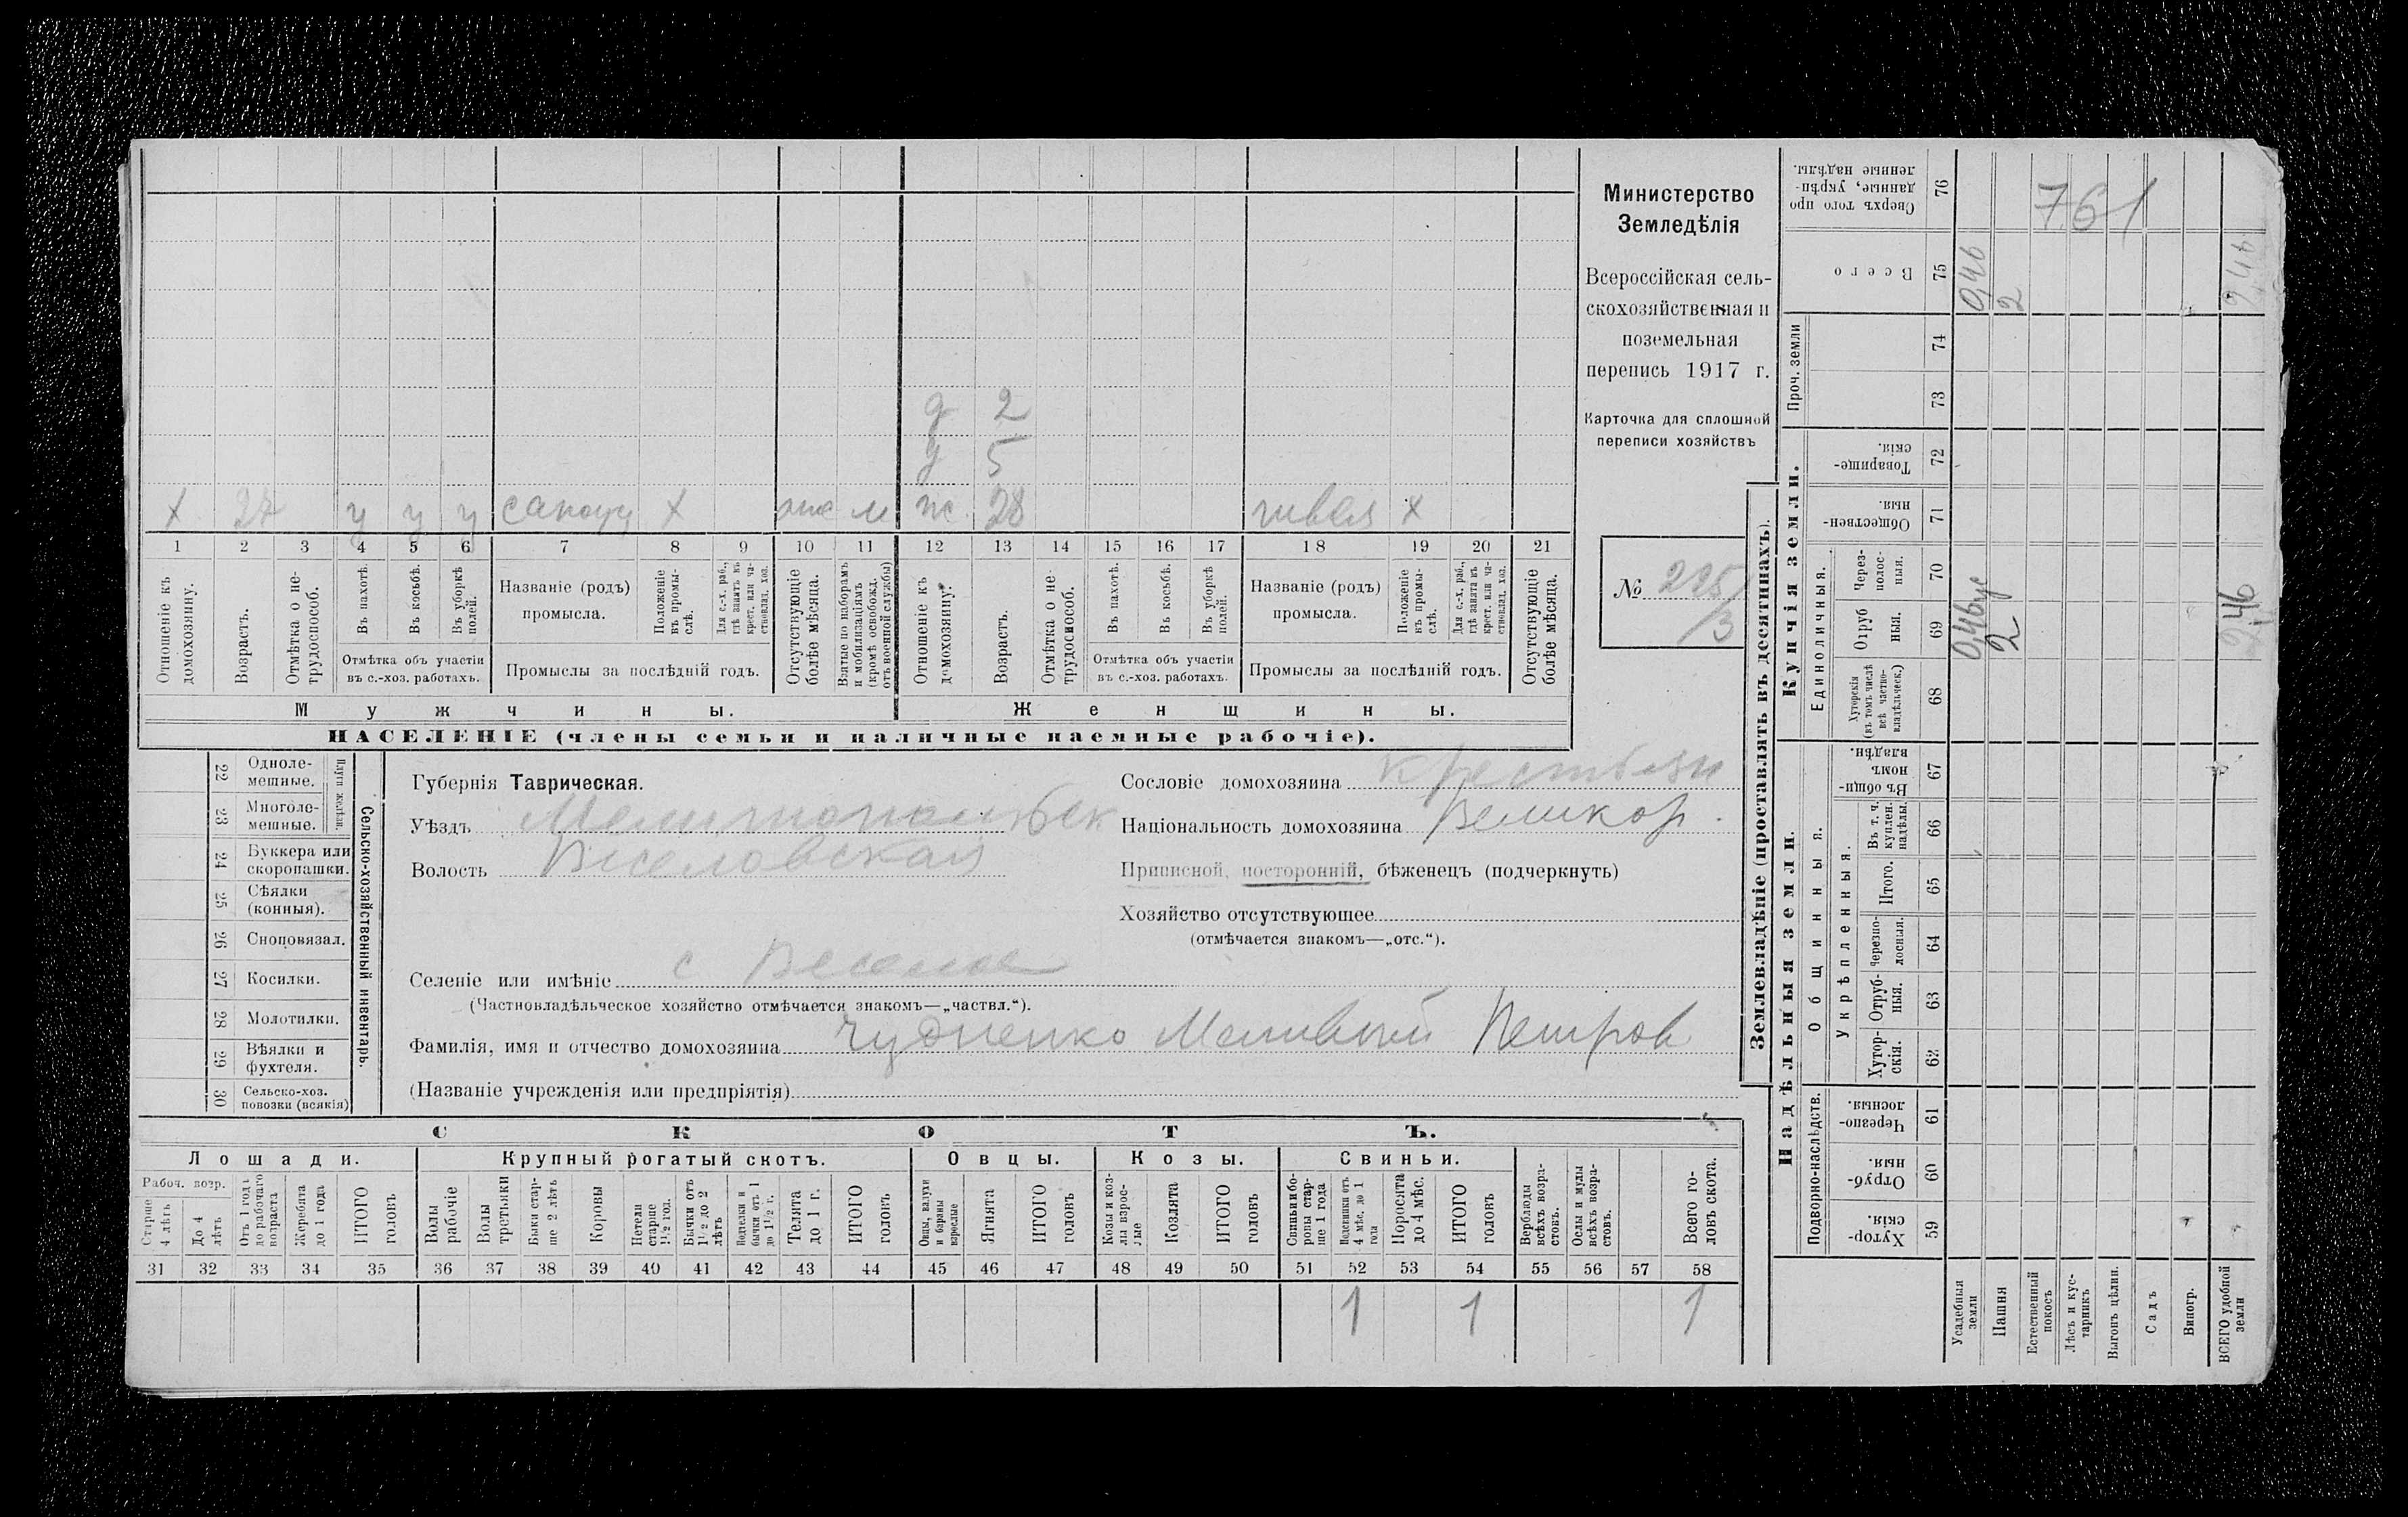 Министерство
Земледѣлія
Всероссійская сель-
скохозяйственная и
поземельная
перепись 1917 г.
Карточка для сплошной
переписи хозяйствъ
№ 225/3
д 2
у 5
х 27 у у у сапож х м ж 28 швея х
1 2 3 4 5 6 7 8 9 10 11 12 13 14 15 16 17 18 19 20 21
Отношеніе къ домохозяину.
Возрастъ.
Отмѣтка о не-трудоспособ.
Въ пахотѣ.
Въ косьбѣ.
Въ уборкѣ полей.
Отмѣтка объ участіи въ с.-хоз. работахъ.
Названіе (родъ) промысла.
Положеніе въ промы-слѣ.
Для с.-х. раб., гдѣ занятъ въ крест. или ча-ствовлад. хоз.
Промыслы за послѣдній годъ.
Отсутствующіе болѣе мѣсяца.
Взятые по наборамъ и мобилизаціямъ (кромѣ освобожд. отъ военной службы)
Отношеніе къ домохозяину.
Возрастъ.
Отмѣтка о не-трудоспособ.
Въ пахотѣ.
Въ косьбѣ.
Въ уборкѣ полей.
Отмѣтка объ участіи въ с.-хоз. работахъ.
Названіе (родъ) промысла.
Положеніе въ промы-слѣ.
Для с.-х. раб., гдѣ занята въ крест. или ча-ствовлад. хоз.
Промыслы за послѣдній годъ.
Отсутствующіе болѣе мѣсяца.
Мужчины. Женщины.
НАСЕЛЕНІЕ (члены семьи и наличные наемные рабочіе).
Сельско-хозяйственный инвентарь.
Плуги желѣзн.
22 Одноле-мешные.
23 Многоле-мешные.
24 Буккера или скоропашки.
25 Сѣялки (конныя).
26 Сноповязал.
27 Косилки.
28 Молотилки.
29 Вѣялки и фухтеля.
30 Сельско-хоз. повозки (всякія)
Губернія Таврическая.
Уѣздъ Мелитопольск
Волость Веселовская
Сословіе домохозяина крестьян
Національность домохозяина Великор.
Приписной, посторонній, бѣженецъ (подчеркнуть)
Хозяйство отсутствующее
(отмѣчается знакомъ—„отс.“).
Селеніе или имѣніе с Веселое
(Частновладѣльческое хозяйство отмѣчается знакомъ—„частвл.“).
Фамилія, имя и отчество домохозяина Чудненко Матвѣй Петров
(Названіе учрежденія или предпріятія)
СКОТЪ.
Лошади. Крупный рогатый скотъ. Овцы. Козы. Свиньи.
Рабоч. возр.
Старше 4 лѣтъ
До 4 лѣтъ
Отъ 1 года до рабочаго возраста
Жеребята до 1 года
ИТОГО головъ
Волы рабочіе
Волы третьяки
Быки стар-ше 2 лѣтъ
Коровы
Нетели старше 1½ год.
Бычки отъ 1½ до 2 лѣтъ
Нетелки и бычки отъ 1 до 1½ г.
Телята до 1 г.
ИТОГО головъ
Овцы, валухи и бараны взрослые
Ягнята
ИТОГО головъ
Козы и коз-лы взрос-лые
Козлята
ИТОГО головъ
Свиньи и бо-ровы стар-ше 1 года
Подсвинки отъ 4 мѣс. до 1 года
Поросята до 4 мѣс.
ИТОГО головъ
Верблюды всѣхъ возра-стовъ.
Ослы и мулы всѣхъ возра-стовъ.
Всего го-ловъ скота.
31 32 33 34 35 36 37 38 39 40 41 42 43 44 45 46 47 48 49 50 51 52 53 54 55 56 57 58
1 1 1
Землевладѣніе (проставлять въ десятинахъ).
Надѣльныя земли.
Подворно-наслѣдств.
Хутор-скія. 59
Отруб-ныя. 60
Черезпо-лосныя. 61
Общинныя.
Укрѣпленныя.
Хутор-скія. 62
Отруб-ныя. 63
Черезпо-лосныя. 64
Итого. 65
Въ т. ч. куплен. надѣлы. 66
Въ общин-номъ владѣн. 67
Купчія земли.
Единоличныя.
Хуторскія (въ томъ числѣ всѣ частно-владѣльческ.) 68
Отруб ныя. 69
Через-полос-ныя. 70
Обществен-ныя. 71
Товарище-скія. 72
Проч. земли
73
74
Всего 75
Сверхъ того про данные, укрѣп-ленные надѣлы. 76
Усадебныя земли 0,46ус 0,46
Пашня 2 2
Естественный покосъ
Лѣсъ и кус-тарникъ
Выгонъ цѣлин.
Садъ
Виногр.
ВСЕГО удобной земли 2,46 2,46
761